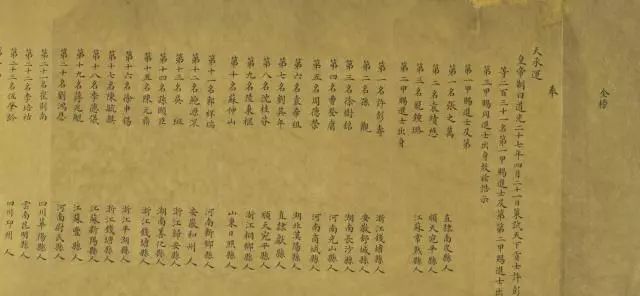 金榜
奉
天承運
皇帝制曰道光二十七年四月二十一日策試天下貢士許彭
等二百三十一名第一甲賜進士及第第二甲賜進士出
第三甲賜同進士出身故茲誥示
第一甲賜進士及第
第一名張之萬 直隸南皮縣人
第二名袁績懋 順天宛平縣人
第三名龐鍾璐 江蘇常熟縣人
第二甲賜進士出身
第一名許彭壽 浙江錢塘縣人
第二名孫觀 安徽舒城縣人
第三名徐樹銘 湖南長沙縣人
第四名曹登庸 河南光山縣人
第五名周德榮 河南商城縣人
第六名袁希祖 湖北漢陽縣人
第七名劉其年 直隸獻縣人
第八名沈桂芬 順天宛平縣人
第九名陸秉樞 浙江桐鄉縣人
第十名蘇仲山 山東日照縣人
第十一名郭祥瑞 河南新鄉縣人
第十二名鮑源深 安徽和州人
第十三名吳 浙江歸安縣人
第十四名孫頤臣 湖南善化縣人
第十五名陳元鼎 浙江錢塘縣人
第十六名徐申錫 浙江平湖縣人
第十七名陳毓麒 浙江錢塘縣人
第十八名李德儀 江蘇新陽縣人
第十九名蔣 江蘇 縣人
第二十名劉鴻恩 河南尉氏縣人
第二十一名 南 四川華陽縣人
第二十二名李培祜 雲南昆明縣人
第二十三名伍肇齡 四川邛州人